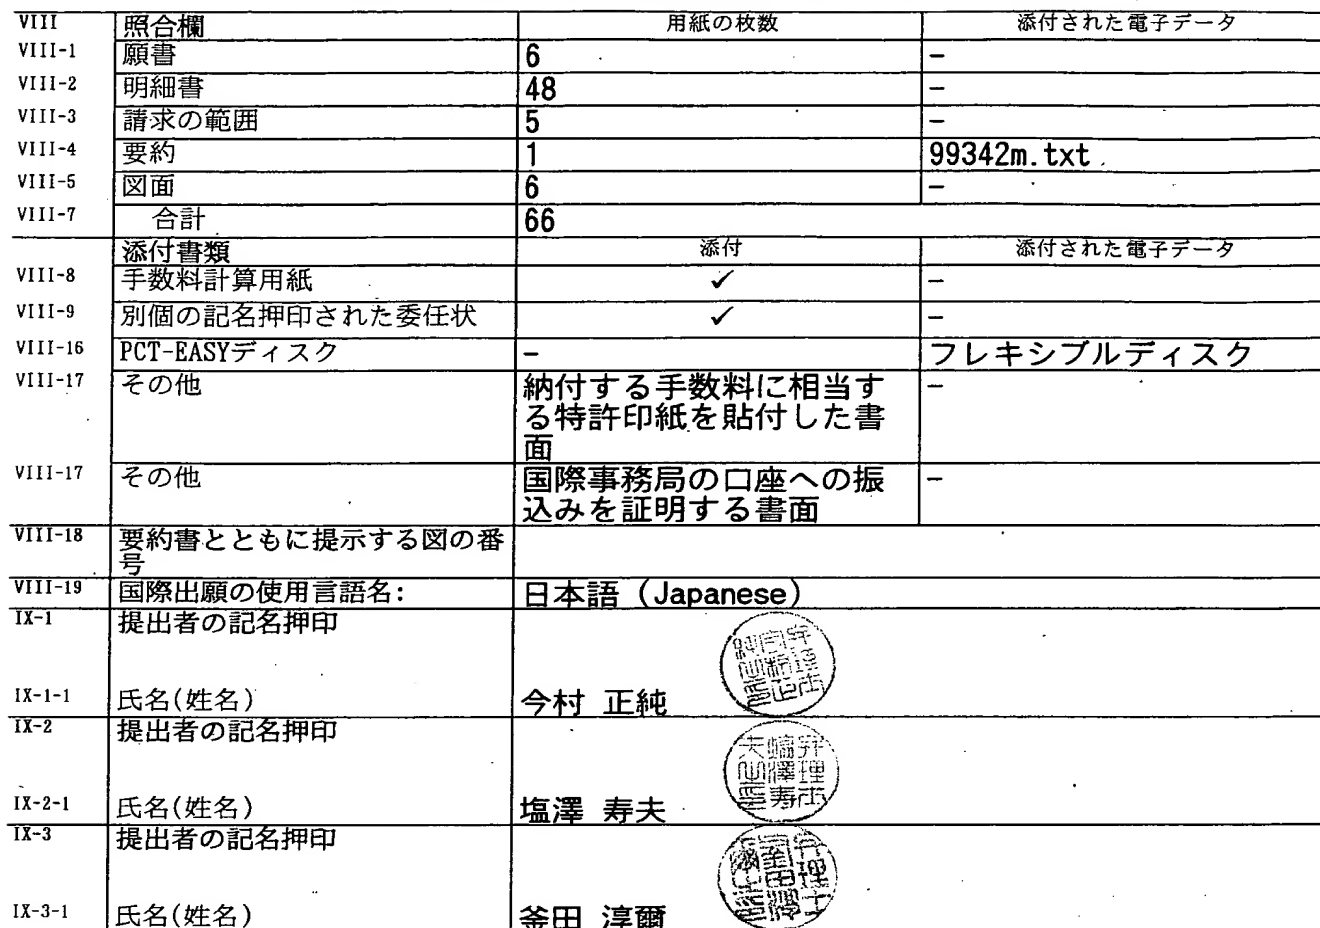 VIII 照合欄 用紙の枚数 添付された電子データ
VIII-1 願書 6 -
VIII-2 明細書 48 -
VIII-3 請求の範囲 5 -
VIII-4 要約 1 99342m.txt
VIII-5 図面 6 -
VIII-7 合計 66
添付書類 添付 添付された電子データ
VIII-8 手数料計算用紙 ✓ -
VIII-9 別個の記名押印された委任状 ✓ -
VIII-16 PCT-EASYディスク - フレキシブルディスク
VIII-17 その他 納付する手数料に相当す -
る特許印紙を貼付した書
面
VIII-17 その他 国際事務局の口座への振 -
込みを証明する書面
VIII-18 要約書とともに提示する図の番
号
VIII-19 国際出願の使用言語名: 日本語 (Japanese)
IX-1 提出者の記名押印
IX-1-1 氏名(姓名) 今村 正純
IX-2 提出者の記名押印
IX-2-1 氏名(姓名) 塩澤 寿夫
IX-3 提出者の記名押印
IX-3-1 氏名(姓名) 釜田 淳爾